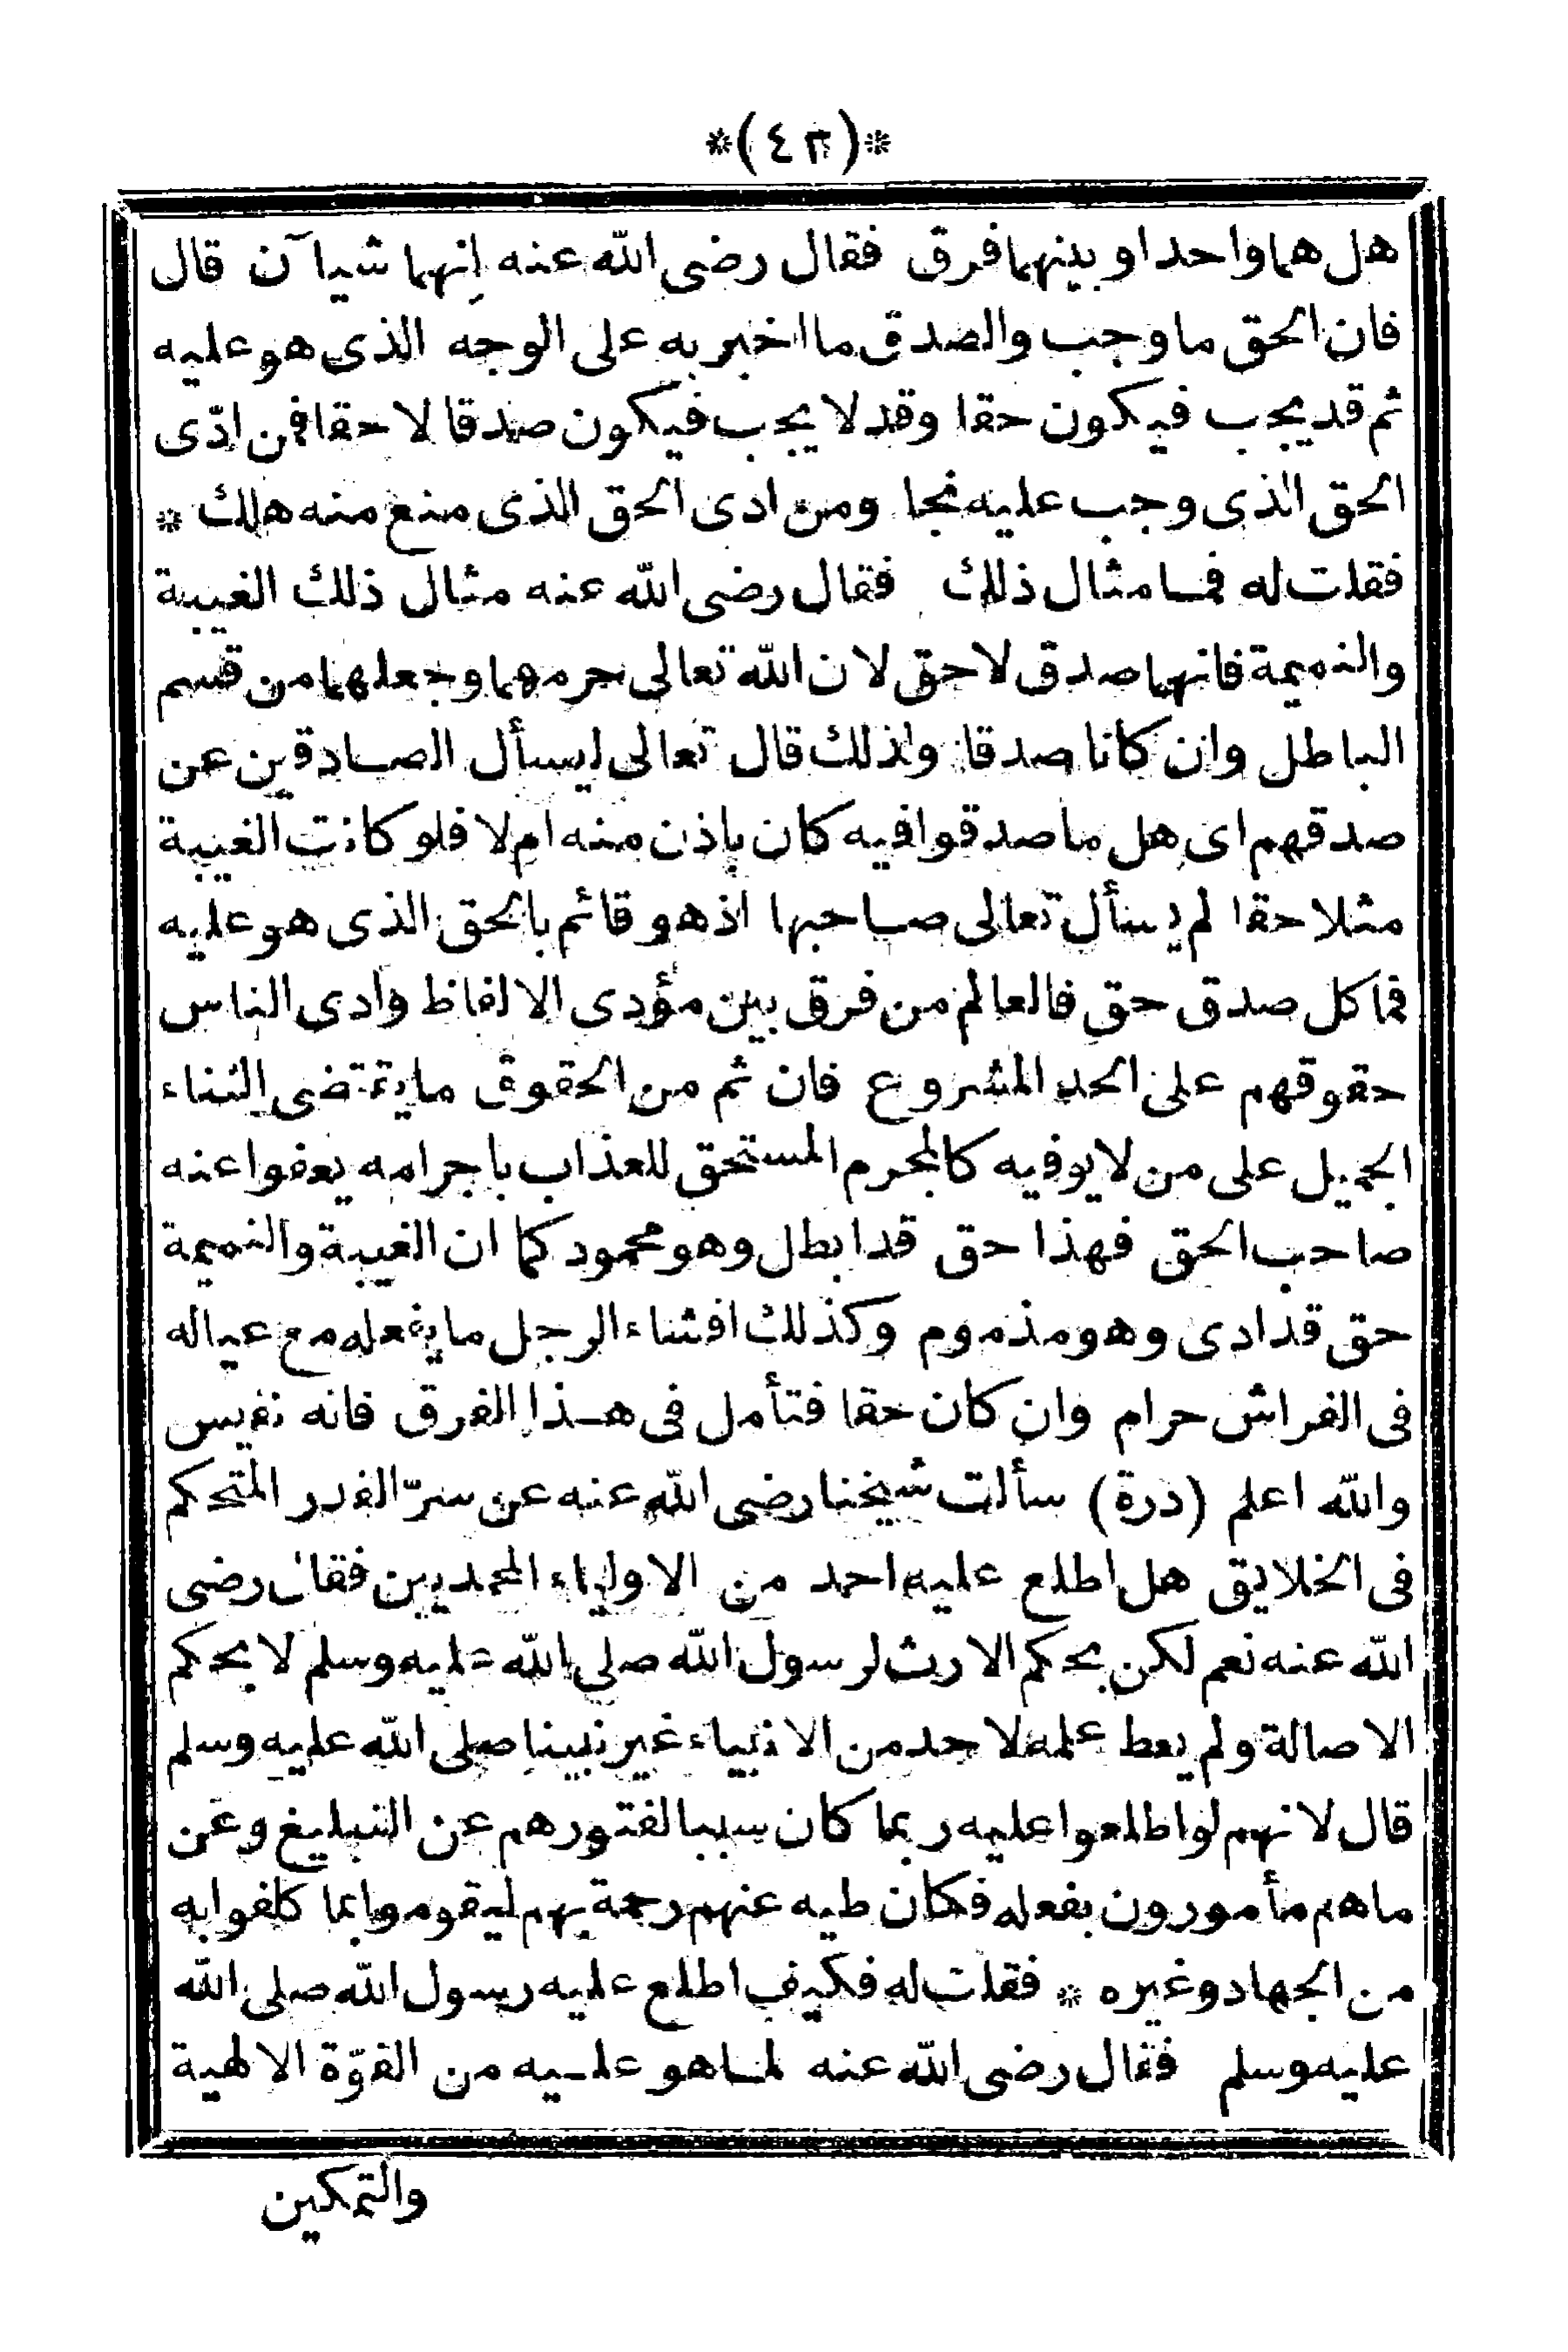 *(٤٢)*
هل هما واحد او بينهما فرق فقال رضى الله عنه انهما شيا آن قال
فان الحق ما وجب والصدق ما اخبر به على الوجه الذى هو عليه
ثم قد يجب فيكون حقا وقد لا يجب فيكون صدقا لا حقا فمن ادّى
الحق الذى وجب عليه نجا ومن ادى الحق الذى منع منه هلك *
فقلت له فما مثال ذلك فقال رضى الله عنه مثال ذلك الغيبة
والنميمة فانهما صدق لا حق لان الله تعالى حرمهما وجعلهما من قسم
الباطل وان كانا صدقا ولذلك قال تعالى ليسأل الصادقين عن
صدقهم اى هل ما صدقوا فيه كان باذن منه ام لا فلو كانت الغيبة
مثلا حقا لم يسأل تعالى صاحبها اذ هو قائم بالحق الذى هو عليه
فما كل صدق حق فالعالم من فرق بين مؤدى الالفاظ وادى الناس
حقوقهم على الحد المشروع فان ثم من الحقوق ما يقتضى الثناء
الجميل على من لا يوفيه كالمجرم المستحق للعذاب باجرامه يعفوا عنه
صاحب الحق فهذا حق قد ابطل وهو محمود كما ان الغيبة والنميمة
حق قد ادى وهو مذموم وكذلك افشاء الرجل ما يفعله مع عياله
فى الفراش حرام وان كان حقا فتأمل فى هذا الفرق فانه نفيس
والله اعلم (درة) سألت شيخنا رضى الله عنه عن سرّ القدر المتحكم
فى الخلايق هل اطلع عليه احد من الاولياء المحمديين فقال رضى
الله عنه نعم لكن بحكم الارث لرسول الله صلى الله عليه وسلم لا بحكم
الاصالة ولم يعط علمه لاحد من الانبياء غير نبينا صلى الله عليه وسلم
قال لانهم لو اطلعوا عليه ربما كان سببا لفتورهم عن التبليغ وعن
ما هم مأمورون بفعله فكان طيه عنهم رحمة بهم ليقوموا بما كلفوا به
من الجهاد وغيره * فقلت له فكيف اطلع عليه رسول الله صلى الله
عليه وسلم فقال رضى الله عنه لما هو عليه من القوّة الالهية
والتمكين